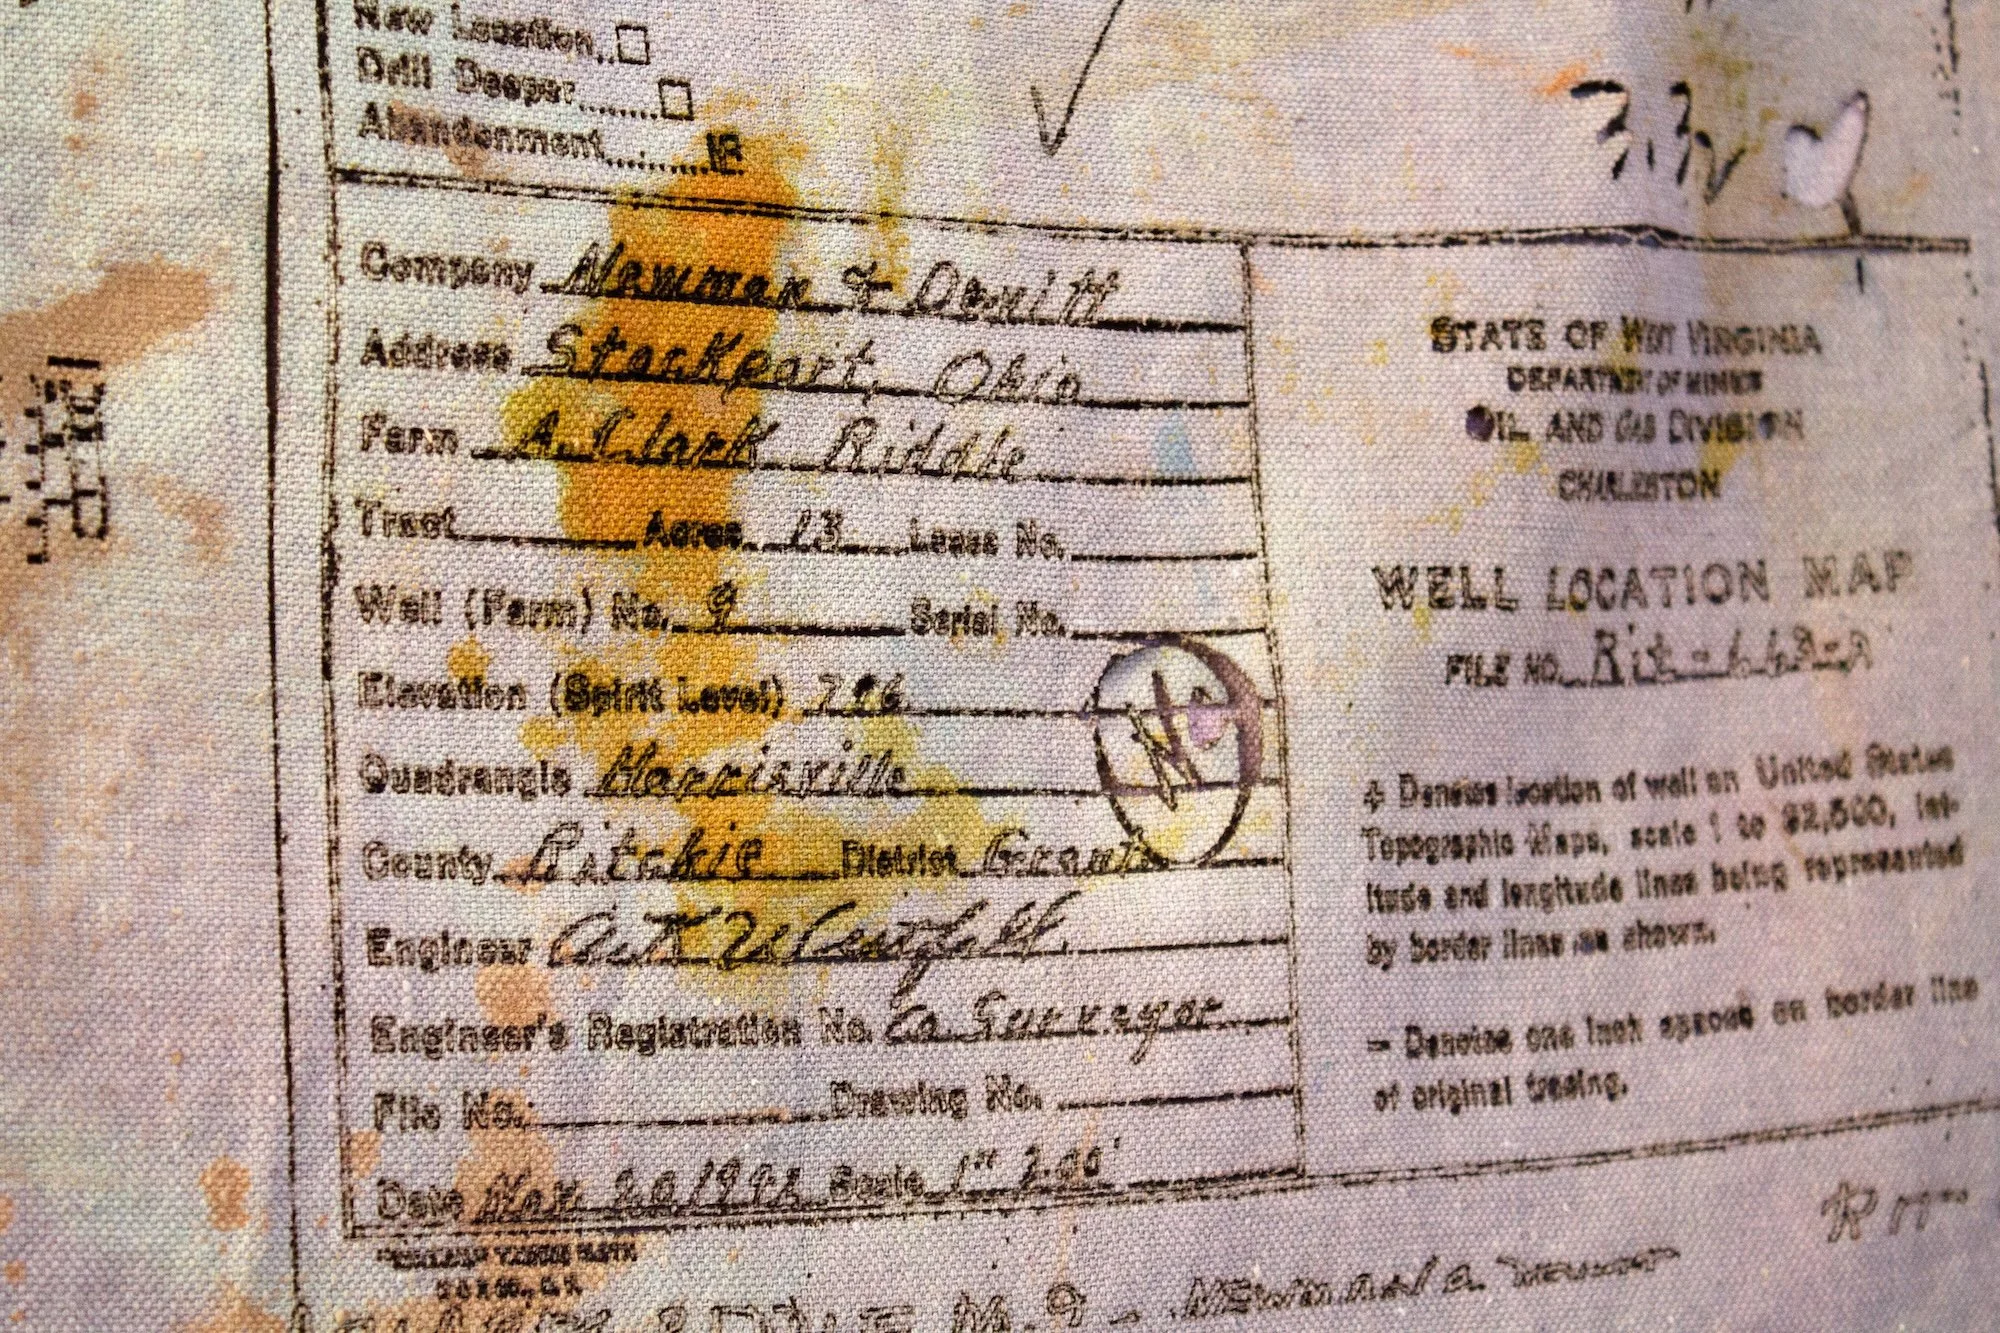 New Location..
Drill Deeper.......
Abandonment..........
Company Newman & Devitt
Address Stockport, Ohio
Farm A. Clark Riddle
Tract Acres 13 Lease No.
Well (Farm) No. 9 Serial No.
Elevation (Spirit Level)
Quadrangle Harrisville
County Ritchie District Grant
Engineer
Engineer's Registration No. Co Surveyor
File No. Drawing No.
Date Scale 1"
3.32
STATE OF WEST VIRGINIA
DEPARTMENT OF MINES
OIL AND GAS DIVISION
CHARLESTON
WELL LOCATION MAP
FILE NO. Rit-
+ Denotes location of well on United States
Topographic Maps, scale 1 to 62,500, lat-
itude and longitude lines being represented
by border lines as shown.
- Denotes one inch spaces on border line
of original tracing.